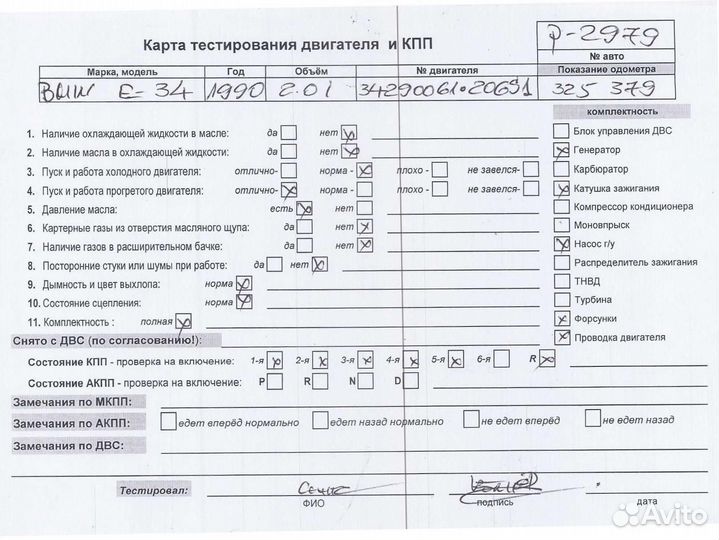 Карта тестирования двигателя и КПП
P-2979
№ авто
Марка, модель Год Объём № двигателя Показание одометра
BMW E-34 1990 2.0i 34290061·206S1 325 379
комплектность
1. Наличие охлаждающей жидкости в масле: да нет
2. Наличие масла в охлаждающей жидкости: да нет
3. Пуск и работа холодного двигателя: отлично- норма - плохо - не завелся-
4. Пуск и работа прогретого двигателя: отлично- норма - плохо - не завелся-
5. Давление масла: есть нет
6. Картерные газы из отверстия масляного щупа: да нет
7. Наличие газов в расширительном бачке: да нет
8. Посторонние стуки или шумы при работе: да нет
9. Дымность и цвет выхлопа: норма
10. Состояние сцепления: норма
11. Комплектность : полная
Блок управления ДВС
Генератор
Карбюратор
Катушка зажигания
Компрессор кондиционера
Моновпрыск
Насос г/у
Распределитель зажигания
ТНВД
Турбина
Форсунки
Проводка двигателя
Снято с ДВС (по согласованию!):
Состояние КПП - проверка на включение: 1-я 2-я 3-я 4-я 5-я 6-я R
Состояние АКПП - проверка на включение: P R N D
Замечания по МКПП:
Замечания по АКПП: едет вперёд нормально едет назад нормально не едет вперёд не едет назад
Замечания по ДВС:
Тестировал:
ФИО подпись дата
Avito